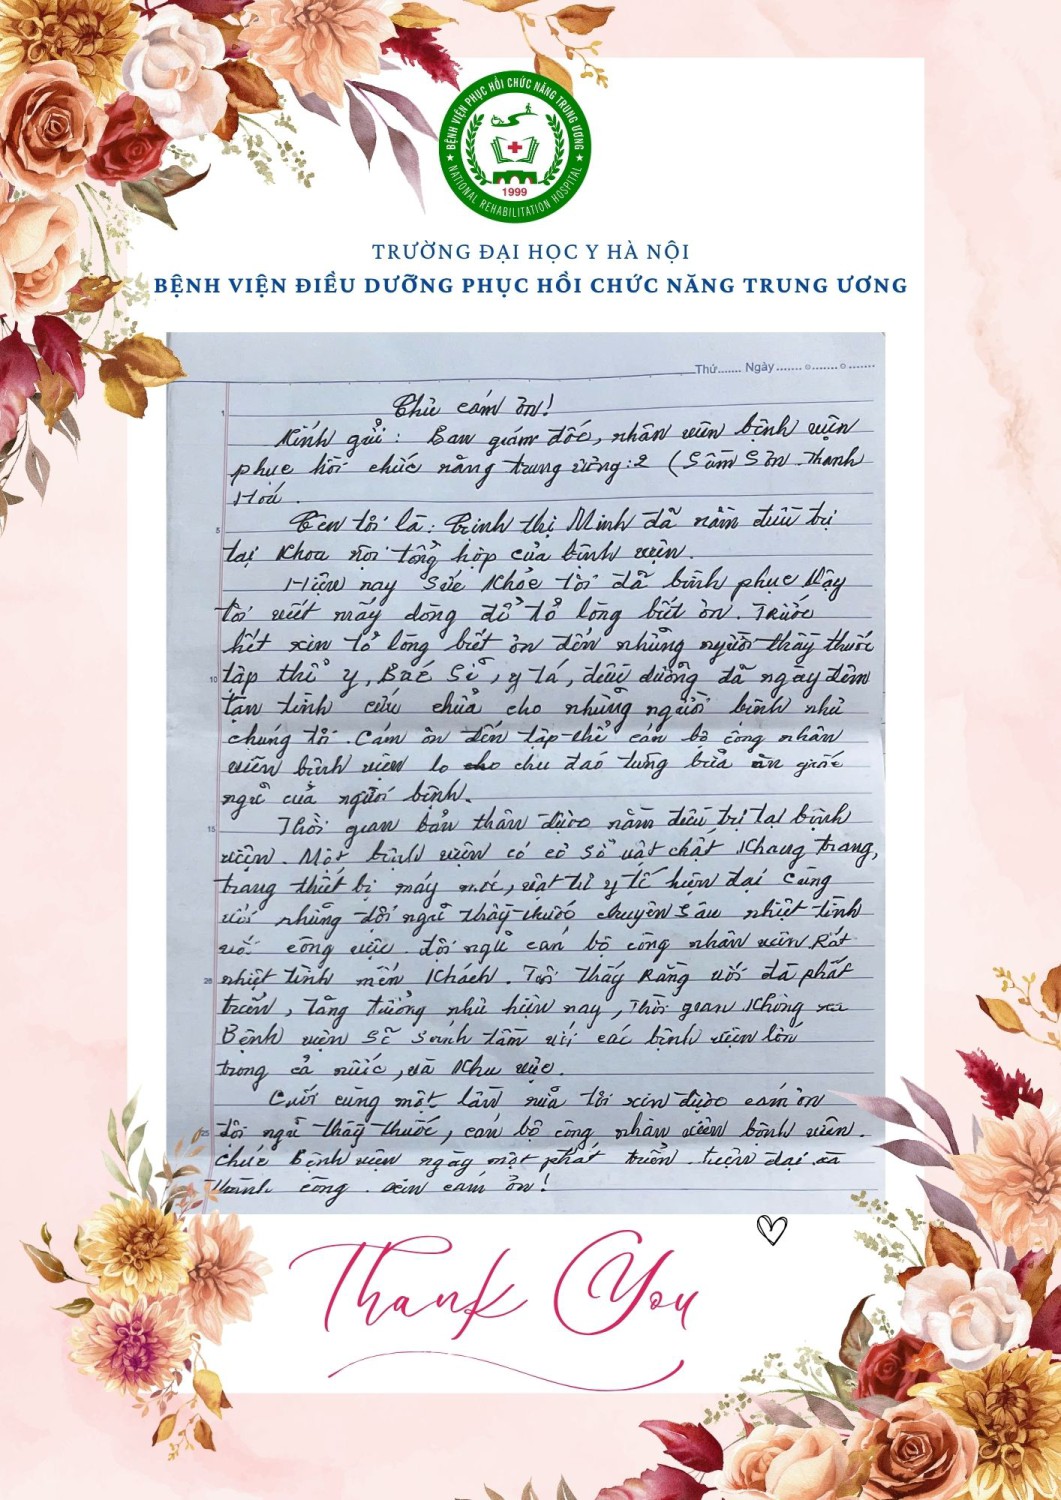 BỆNH VIỆN PHỤC HỒI CHỨC NĂNG TRUNG ƯƠNG
1999
NATIONAL REHABILITATION HOSPITAL
TRƯỜNG ĐẠI HỌC Y HÀ NỘI
BỆNH VIỆN ĐIỀU DƯỠNG PHỤC HỒI CHỨC NĂNG TRUNG ƯƠNG
Thứ....... Ngày.......o.......o.......
1 Thư cám ơn!
Kính gửi: Ban giám đốc, nhân viên bệnh viện
phục hồi chức năng trung ương: 2 (Sầm Sơn. Thanh
Hoá.
5 Tên tôi là: Trịnh thị Minh đã nằm điều trị
tại Khoa nội tổng hợp của bệnh viện.
Hiện nay Sức Khỏe tôi đã bình phục Vậy
tôi viết mấy dòng để tỏ lòng biết ơn. Trước
hết xin tỏ lòng biết ơn đến những người thầy thuốc
10 tập thể y, Bác Sĩ, y tá, điều dưỡng đã ngày đêm
tận tình cứu chữa cho những người bệnh như
chúng tôi. Cám ơn đến tập thể cán bộ công nhân
viên bệnh viện lo cho chu đáo từng bữa ăn giấc
ngủ của người bệnh.
15 Thời gian bản thân được nằm điều trị tại bệnh
viện. Một bệnh viện có cơ sở vật chất Khang trang,
trang thiết bị máy móc, vật tư y tế hiện đại cùng
với những đội ngũ thầy thuốc chuyên sâu nhiệt tình
với công việc. đội ngũ cán bộ công nhân viên Rất
20 nhiệt tình mến Khách. Tôi thấy Rằng với đà phát
triển, tăng trưởng như hiện nay, Thời gian Không xa
Bệnh viện Sẽ Sánh tầm với các bệnh viện lớn
trong cả nước, và Khu vực.
Cuối cùng một lần nữa tôi xin được cám ơn
25 đội ngũ thầy thuốc, cán bộ công nhân viên bệnh viện.
Chúc Bệnh viện ngày một phát triển. hiện đại và
thành công. xin cám ơn!
Thank You